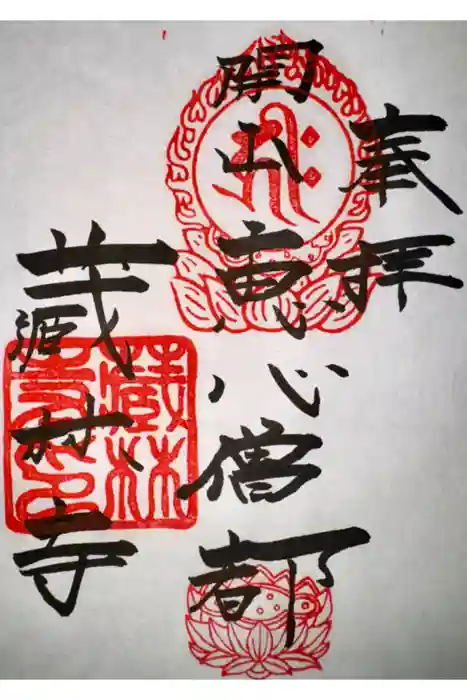 奉拝
開山 恵心僧都
蔵林寺
蔵林
寺印